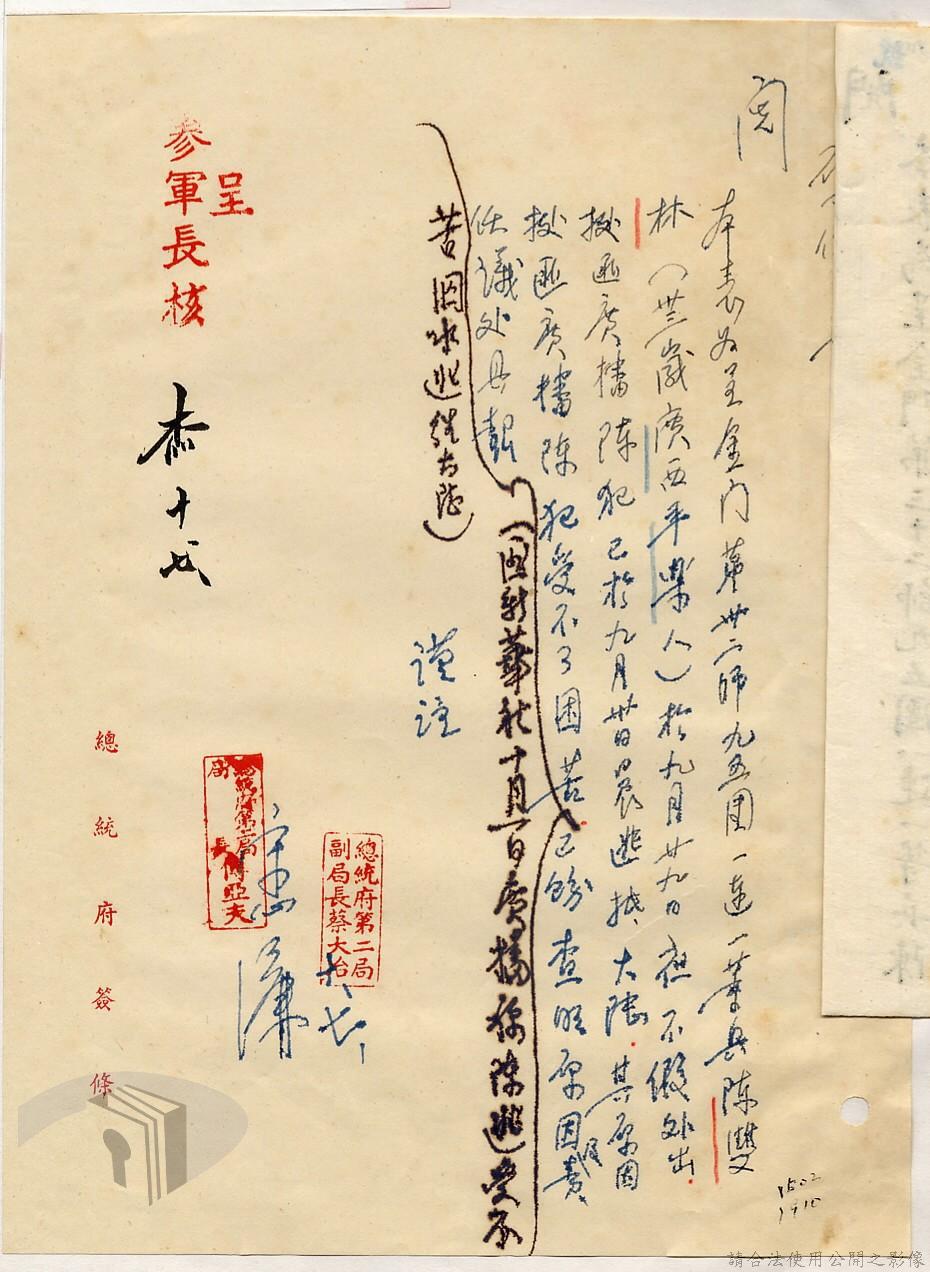 閱
本表為呈金门第卅二師九五团一連一等兵陈雙
林（卅三歲廣西平樂人）於九月廿九日夜不假外出
據匪廣播陈犯已於九月卅日晨逃抵大陸其原因
據匪廣播陈犯受不了困苦已飭查明原因責
任議处具報
（匪新華社十月一日廣播称陈逃受不
苦因
逃往大陸）
謹註
總統府第二局
副局長蔡大治
總統府第二局
局長傅亞夫
呈
參軍長核
十
總統府簽條
1502
1910
請合法使用公開之影像